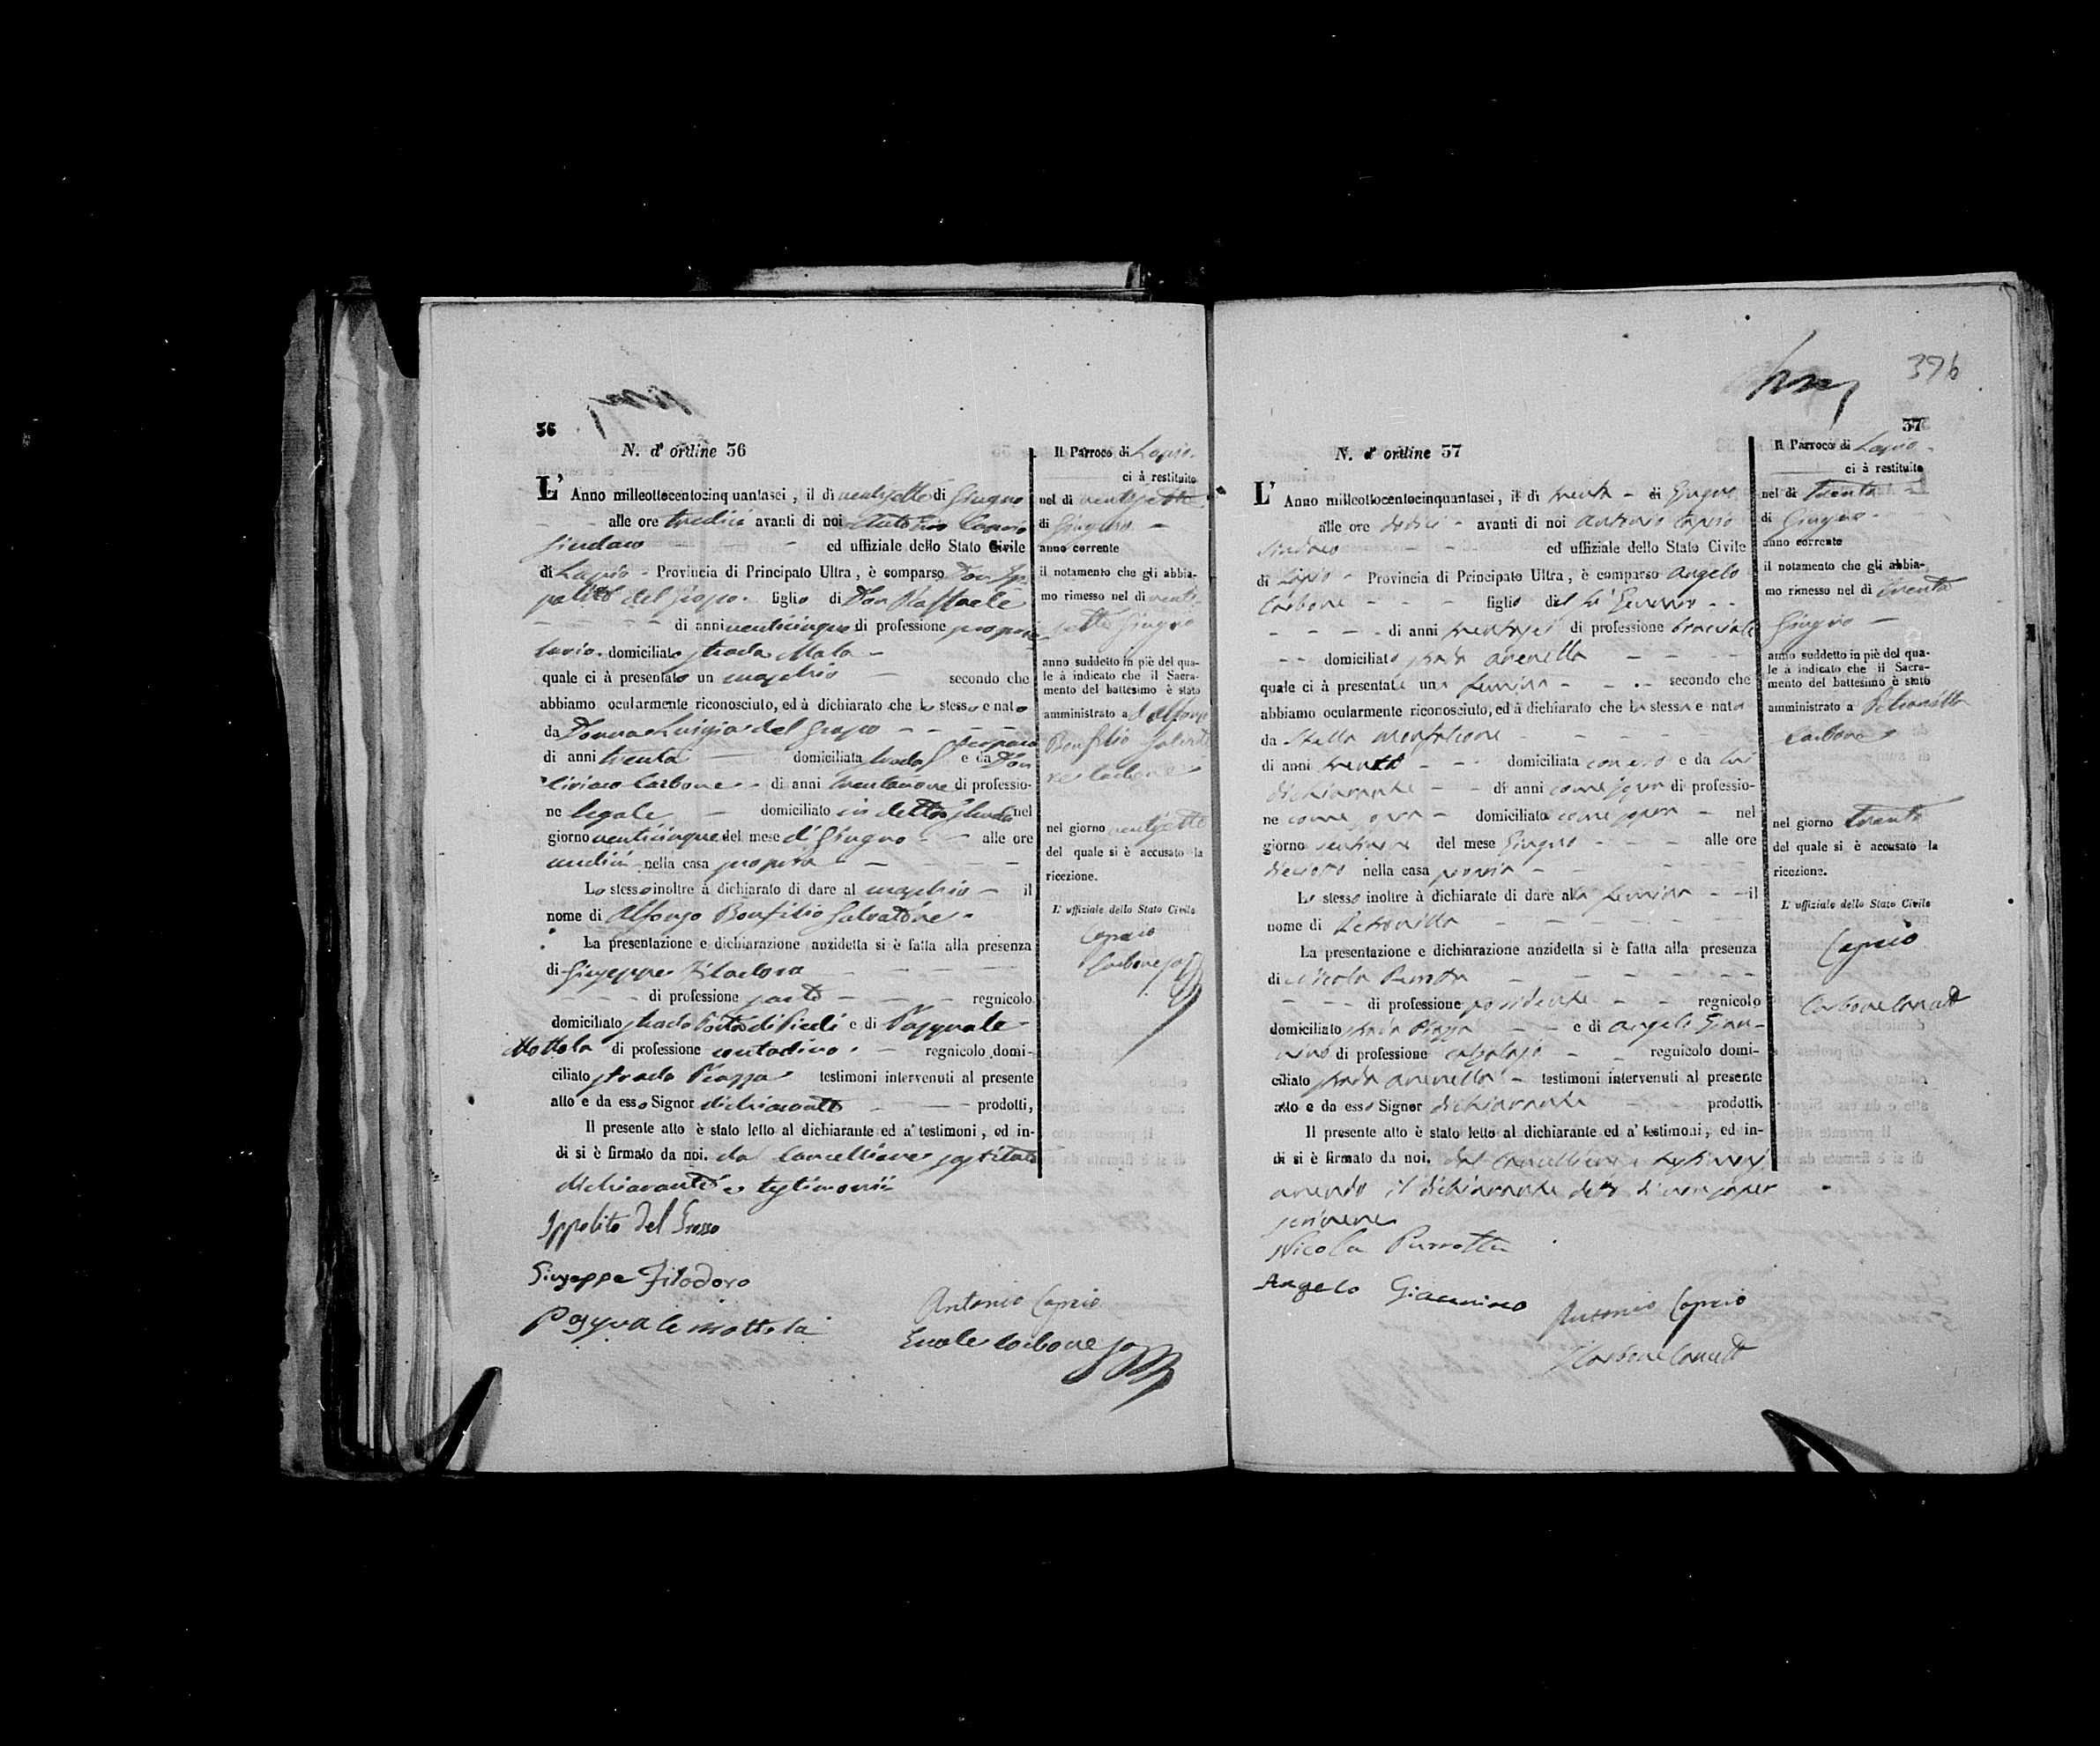 56
N. d' ordine 56
L' Anno milleottocentocinquantasei, il dì ventisette di Giugno
alle ore tredici avanti di noi Antonio Caprio
Sindaco ed uffiziale dello Stato Civile
di Lapio Provincia di Principato Ultra, è comparso Don Ip-
polito del Grosso figlio di Don Raffaele
di anni venticinque di professione proprie
tario domiciliato strada Mala
quale ci à presentato un maschio secondo che
abbiamo ocularmente riconosciuto, ed à dichiarato che lo stesso e nato
da Donna Luigia del Grosso
di anni trenta domiciliata strada e da Don
Ciriaco Carbone di anni trentanove di professio-
ne legale domiciliato in detta strada nel
giorno venticinque del mese di Giugno alle ore
undici nella casa propria
Lo stesso inoltre à dichiarato di dare al maschio il
nome di Alfonso Bonfilio Salvatore
La presentazione e dichiarazione anzidetta si è fatta alla presenza
di Giuseppe Filodoro
di professione sarto regnicolo
domiciliato strada Porta di Piedi e di Pasquale
Mottola di professione contadino regnicolo domi-
ciliato strada Piazza testimoni intervenuti al presente
atto e da esso Signor dichiarante prodotti,
Il presente atto è stato letto al dichiarante ed a' testimoni, ed in-
di si è firmato da noi, dal Cancelliere sostituto
dichiarante e testimonii
Ippolito Del Grosso
Giuseppe Filodoro
Pasquale Mottola
Antonio Caprio
Carbone
Il Parroco di Lapio
ci à restituito
nel dì ventisette
di Giugno
anno corrente
il notamento che gli abbia-
mo rimesso nel dì venti
sette Giugno
anno suddetto in piè del qua-
le à indicato che il Sacra-
mento del battesimo è stato
amministrato a d'Alfonso
Bonfilio Salvato
re Carbone
nel giorno ventisette
del quale si è accusato la
ricezione.
L' uffiziale dello Stato Civile
Caprio
Carbone
376
37
N. d' ordine 57
L' Anno milleottocentocinquantasei, il dì trenta di Giugno
alle ore dodici avanti di noi Antonio Caprio
Sindaco ed uffiziale dello Stato Civile
di Lapio Provincia di Principato Ultra, è comparso Angelo
Carbone figlio del fu Gennaro
di anni trentasei di professione bracciale
domiciliato strada Arenella
quale ci à presentata una femina secondo che
abbiamo ocularmente riconosciuto, ed à dichiarato che la stessa e nata
da Stella
di anni trenta domiciliata con esso e da lui
dichiarante di anni come sopra di professio-
ne come sopra domiciliato come sopra nel
giorno ventinove del mese Giugno alle ore
diciotto nella casa propria
Lo stesso inoltre à dichiarato di dare alla femina il
nome di Petronilla
La presentazione e dichiarazione anzidetta si è fatta alla presenza
di Nicola Purrotta
di professione possidente regnicolo
domiciliato strada Piazza e di Angelo Gian-
nino di professione calzolajo regnicolo domi-
ciliato strada Arenella testimoni intervenuti al presente
atto e da esso Signor dichiarante prodotti,
Il presente atto è stato letto al dichiarante ed a' testimoni, ed in-
di si è firmato da noi, dal Cancelliere e testimonj
avendo il dichiarante detto di non saper
scrivere
Nicola Purrotta
Angelo Giannino
Antonio Caprio
Carbone
Il Parroco di Lapio
ci à restituito
nel dì trenta
di Giugno
anno corrente
il notamento che gli abbia-
mo rimesso nel dì trenta
Giugno
anno suddetto in piè del qua-
le à indicato che il Sacra-
mento del battesimo è stato
amministrato a Petronilla
Carbone
nel giorno trenta
del quale si è accusato la
ricezione.
L' uffiziale dello Stato Civile
Caprio
Carbone